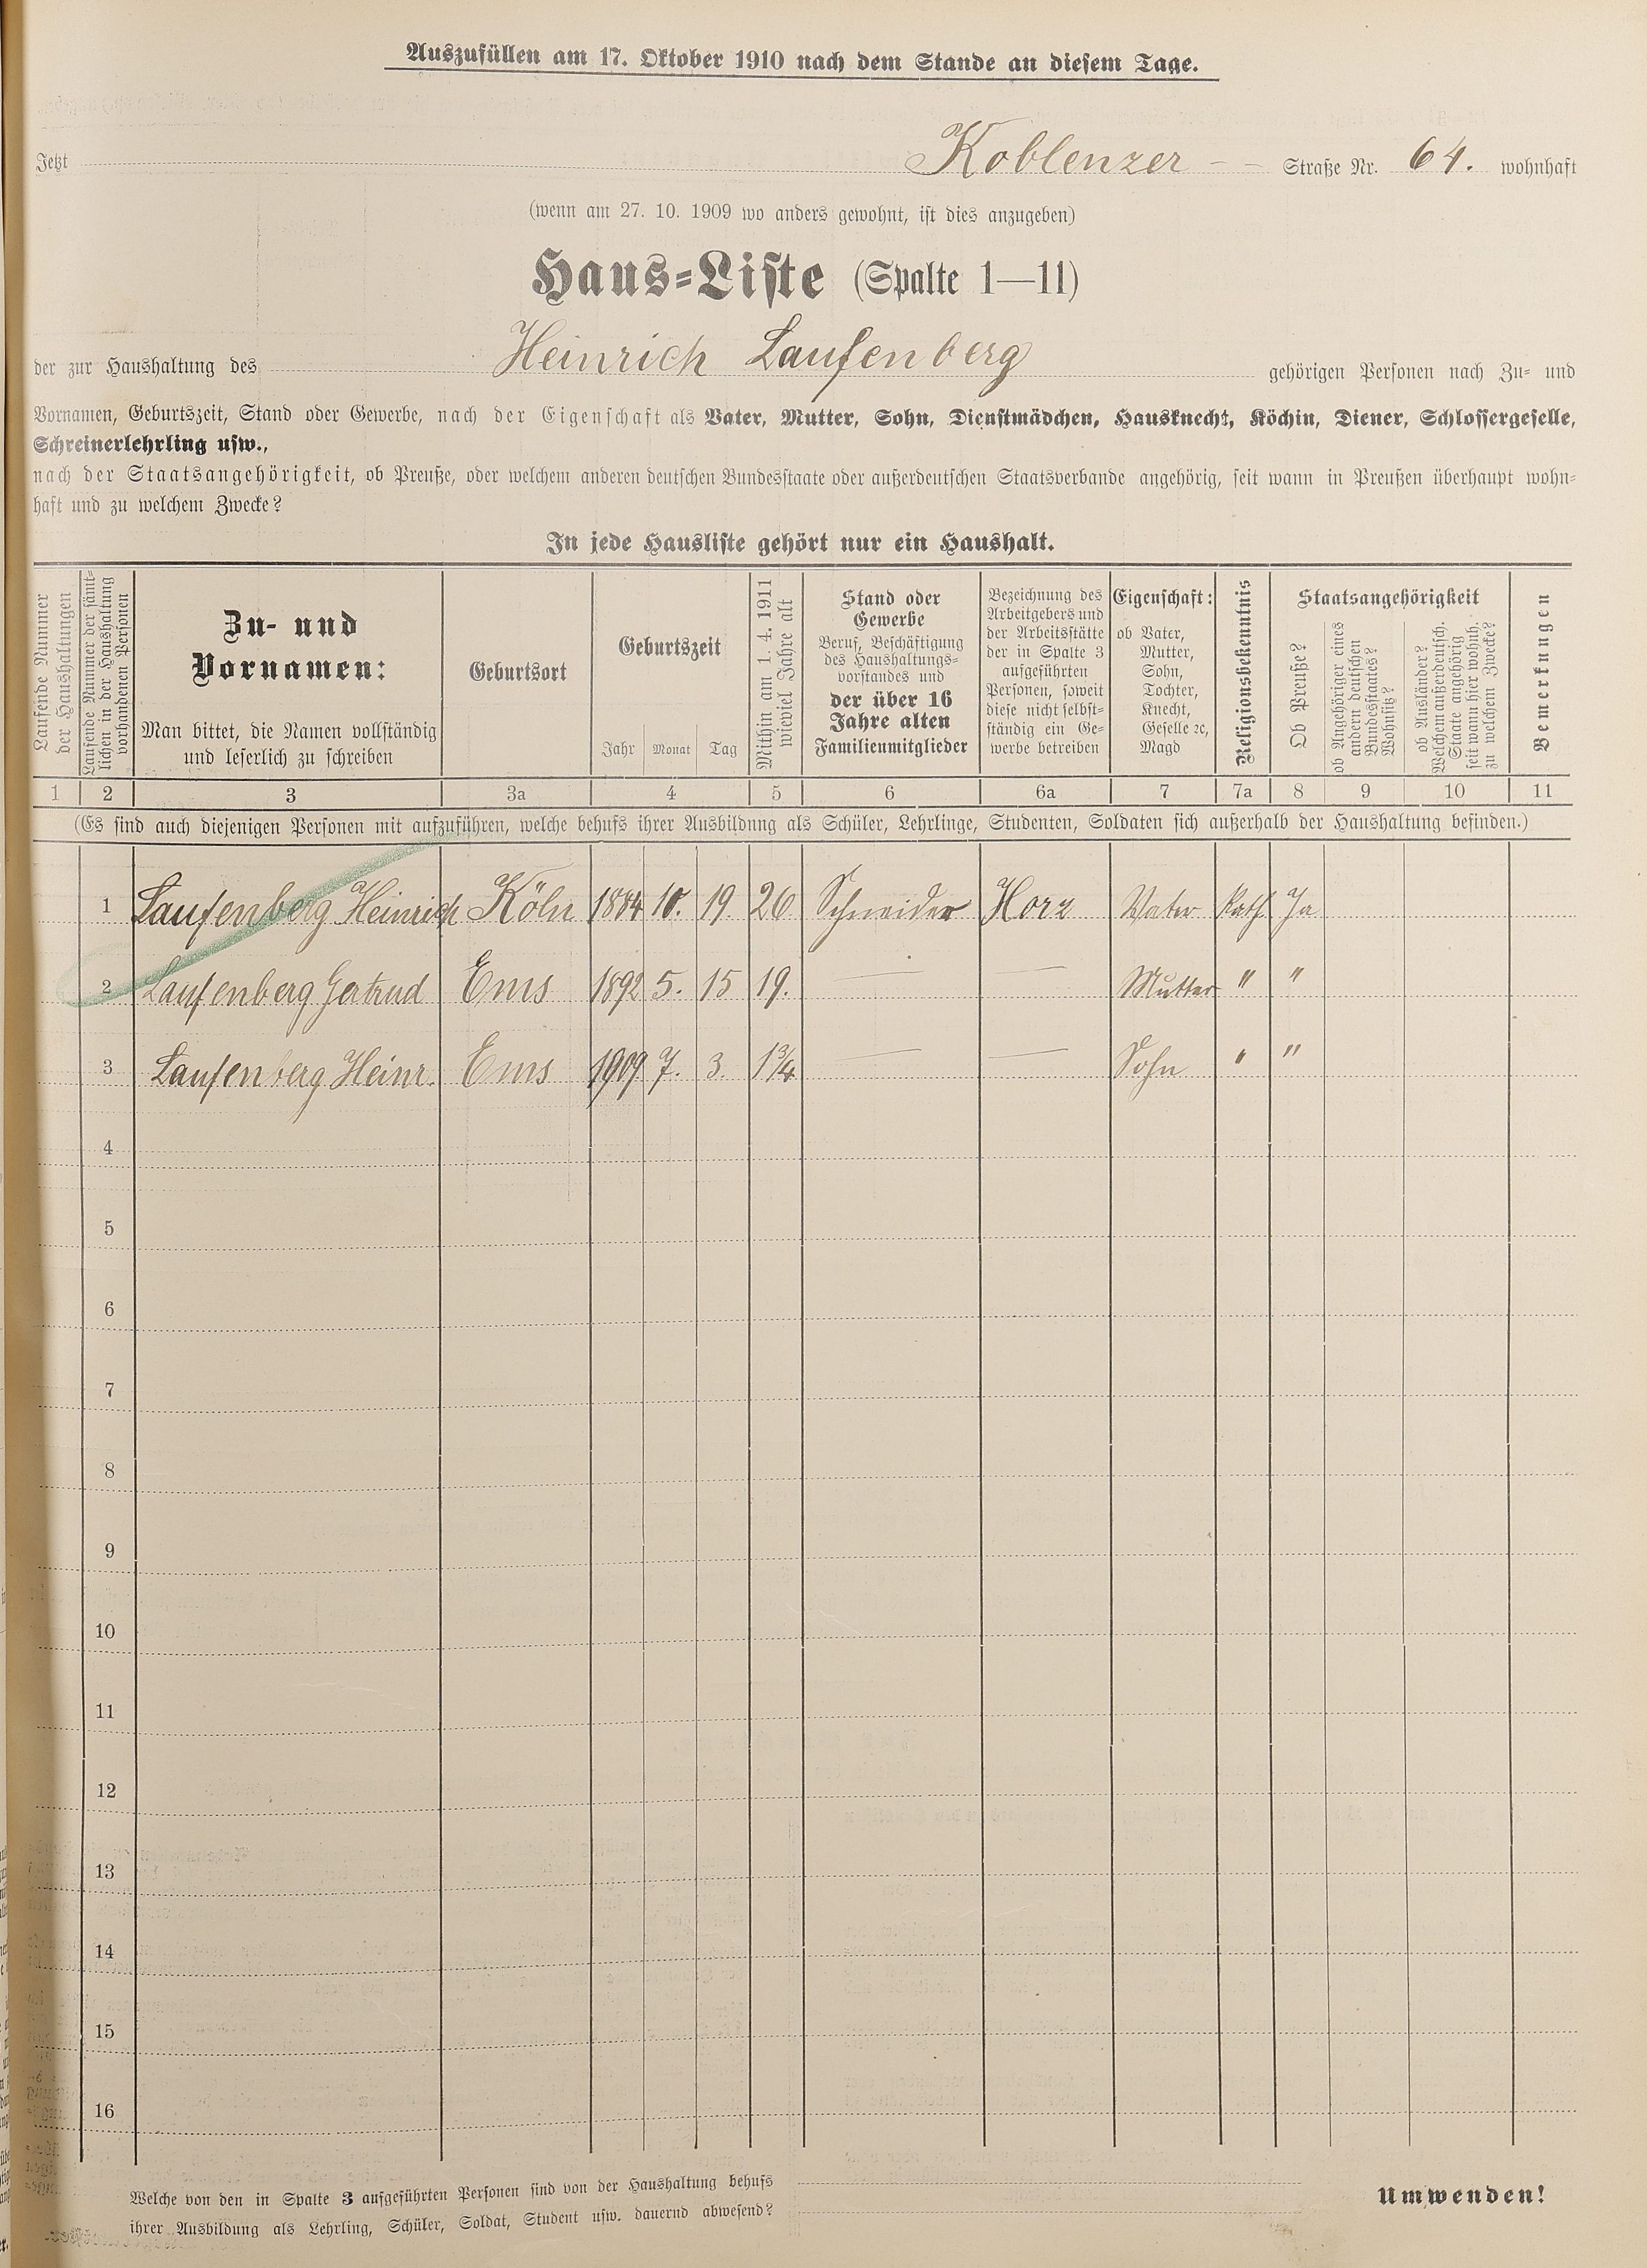 Auszufüllen am 17. Oktober 1910 nach dem Stande an diesem Tage.
Jetzt Koblenzer - - Straße Nr. 64. wohnhaft
(wenn am 27. 10. 1909 wo anders gewohnt, ist dies anzugeben)
Haus-Liste (Spalte 1—11)
der zur Haushaltung des Heinrich Laufenberg gehörigen Personen nach Zu- und
Vornamen, Geburtszeit, Stand oder Gewerbe, nach der Eigenschaft als Vater, Mutter, Sohn, Dienstmädchen, Hausknecht, Köchin, Diener, Schlossergeselle,
Schreinerlehrling usw.,
nach der Staatsangehörigkeit, ob Preuße, oder welchem anderen deutschen Bundesstaate oder außerdeutschen Staatsverbande angehörig, seit wann in Preußen überhaupt wohn-
haft und zu welchem Zwecke?
In jede Hausliste gehört nur ein Haushalt.
Laufende Nummer
der Haushaltungen
Laufende Nummer der sämt-
lichen in der Haushaltung
vorhandenen Personen
Zu- und
Vornamen:
Man bittet, die Namen vollständig
und leserlich zu schreiben
Geburtsort
Geburtszeit
Jahr Monat Tag
Mithin am 1. 4. 1911
wieviel Jahre alt
Stand oder
Gewerbe
Beruf, Beschäftigung
des Haushaltungs-
vorstandes und
der über 16
Jahre alten
Familienmitglieder
Bezeichnung des
Arbeitgebers und
der Arbeitsstätte
der in Spalte 3
aufgeführten
Personen, soweit
diese nicht selbst-
ständig ein Ge-
werbe betreiben
Eigenschaft:
ob Vater,
Mutter,
Sohn,
Tochter,
Knecht,
Geselle ꝛc,
Magd
Religionsbekenntnis
Staatsangehörigkeit
Ob Preuße?
ob Angehöriger eines
andern deutschen
Bundesstaates?
Wohnsitz?
ob Ausländer?
Welchem außerdeutsch.
Staate angehörig
seit wann hier wohnh.
zu welchem Zwecke?
Bemerkungen
1 2 3 3a 4 5 6 6a 7 7a 8 9 10 11
(Es sind auch diejenigen Personen mit aufzuführen, welche behufs ihrer Ausbildung als Schüler, Lehrlinge, Studenten, Soldaten sich außerhalb der Haushaltung befinden.)
1 Laufenberg Heinrich Köln 1884 10. 19. 26 Schneider Horz Vater Kath. Ja
2 Laufenberg Gertrud Ems 1892 5. 15 19. — — Mutter " "
3 Laufenberg Heinr. Ems 1909 7. 3. 1¾ — — Sohn " "
4
5
6
7
8
9
10
11
12
13
14
15
16
Welche von den in Spalte 3 aufgeführten Personen sind von der Haushaltung behufs
ihrer Ausbildung als Lehrling, Schüler, Soldat, Student usw. dauernd abwesend?
Umwenden!